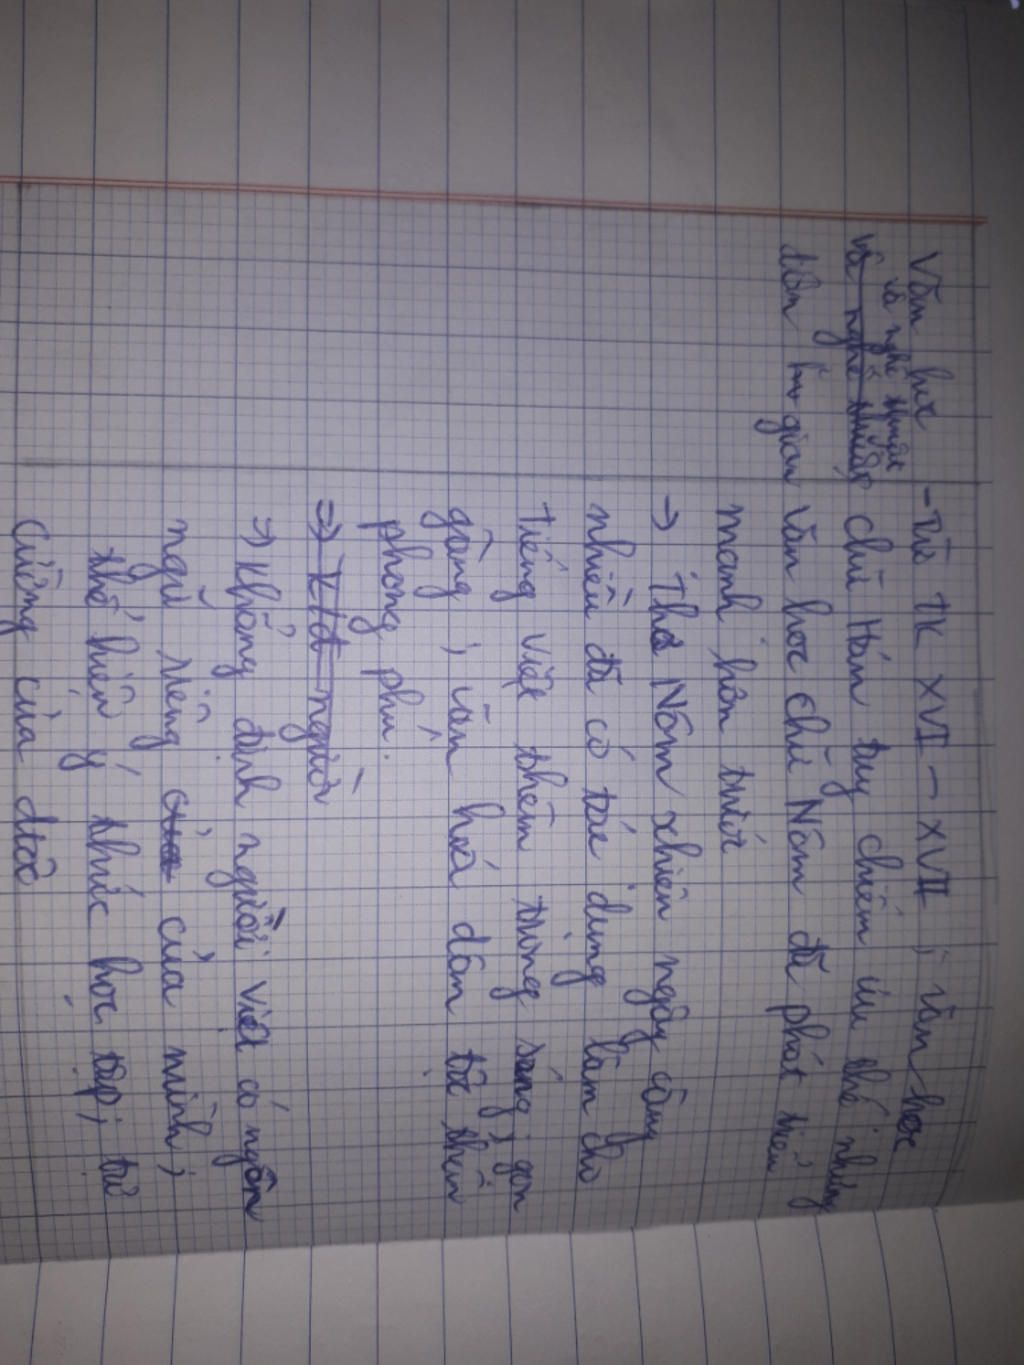 Văn học
và nghệ thuật
dân gian
- Từ TK XVI - XVII, văn học
chữ Hán tuy chiếm ưu thế nhưng
văn học chữ Nôm đã phát triển
mạnh hơn trước
→ thơ Nôm xhiên ngày càng
nhiều đã có tác dụng làm cho
tiếng việt thêm trong sáng, gọn
gàng, văn hoá dân tộc thêm
phong phú.
⇒ Khẳng định người việt có ngôn
ngữ riêng của mình,
thể hiện ý thức học tập, tự
cường của dtộc